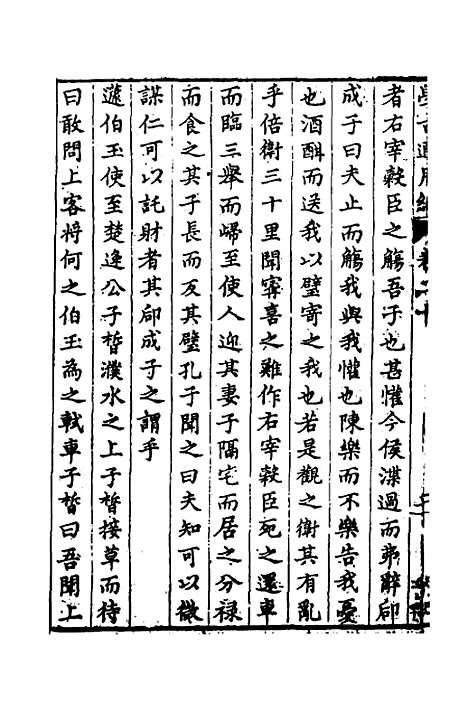 者右宰穀臣之觴吾子也甚懽今侯渫過而弗辭郈
成子曰夫止而觴我與我懽也陳樂而不樂告我憂
也酒酣而送我以璧寄之我也若是觀之衛其有亂
乎倍衛三十里聞甯喜之難作右宰穀臣死之還車
而臨三舉而歸至使人迎其妻子隔宅而居之分祿
而食之其子長而反其璧孔子聞之曰夫知可以微
謀仁可以託財者其郈成子之謂乎
蘧伯玉使至楚逢公子晳濮水之上子晳接草而待
曰敢問上客將何之伯玉為之軾車子晳曰吾聞上